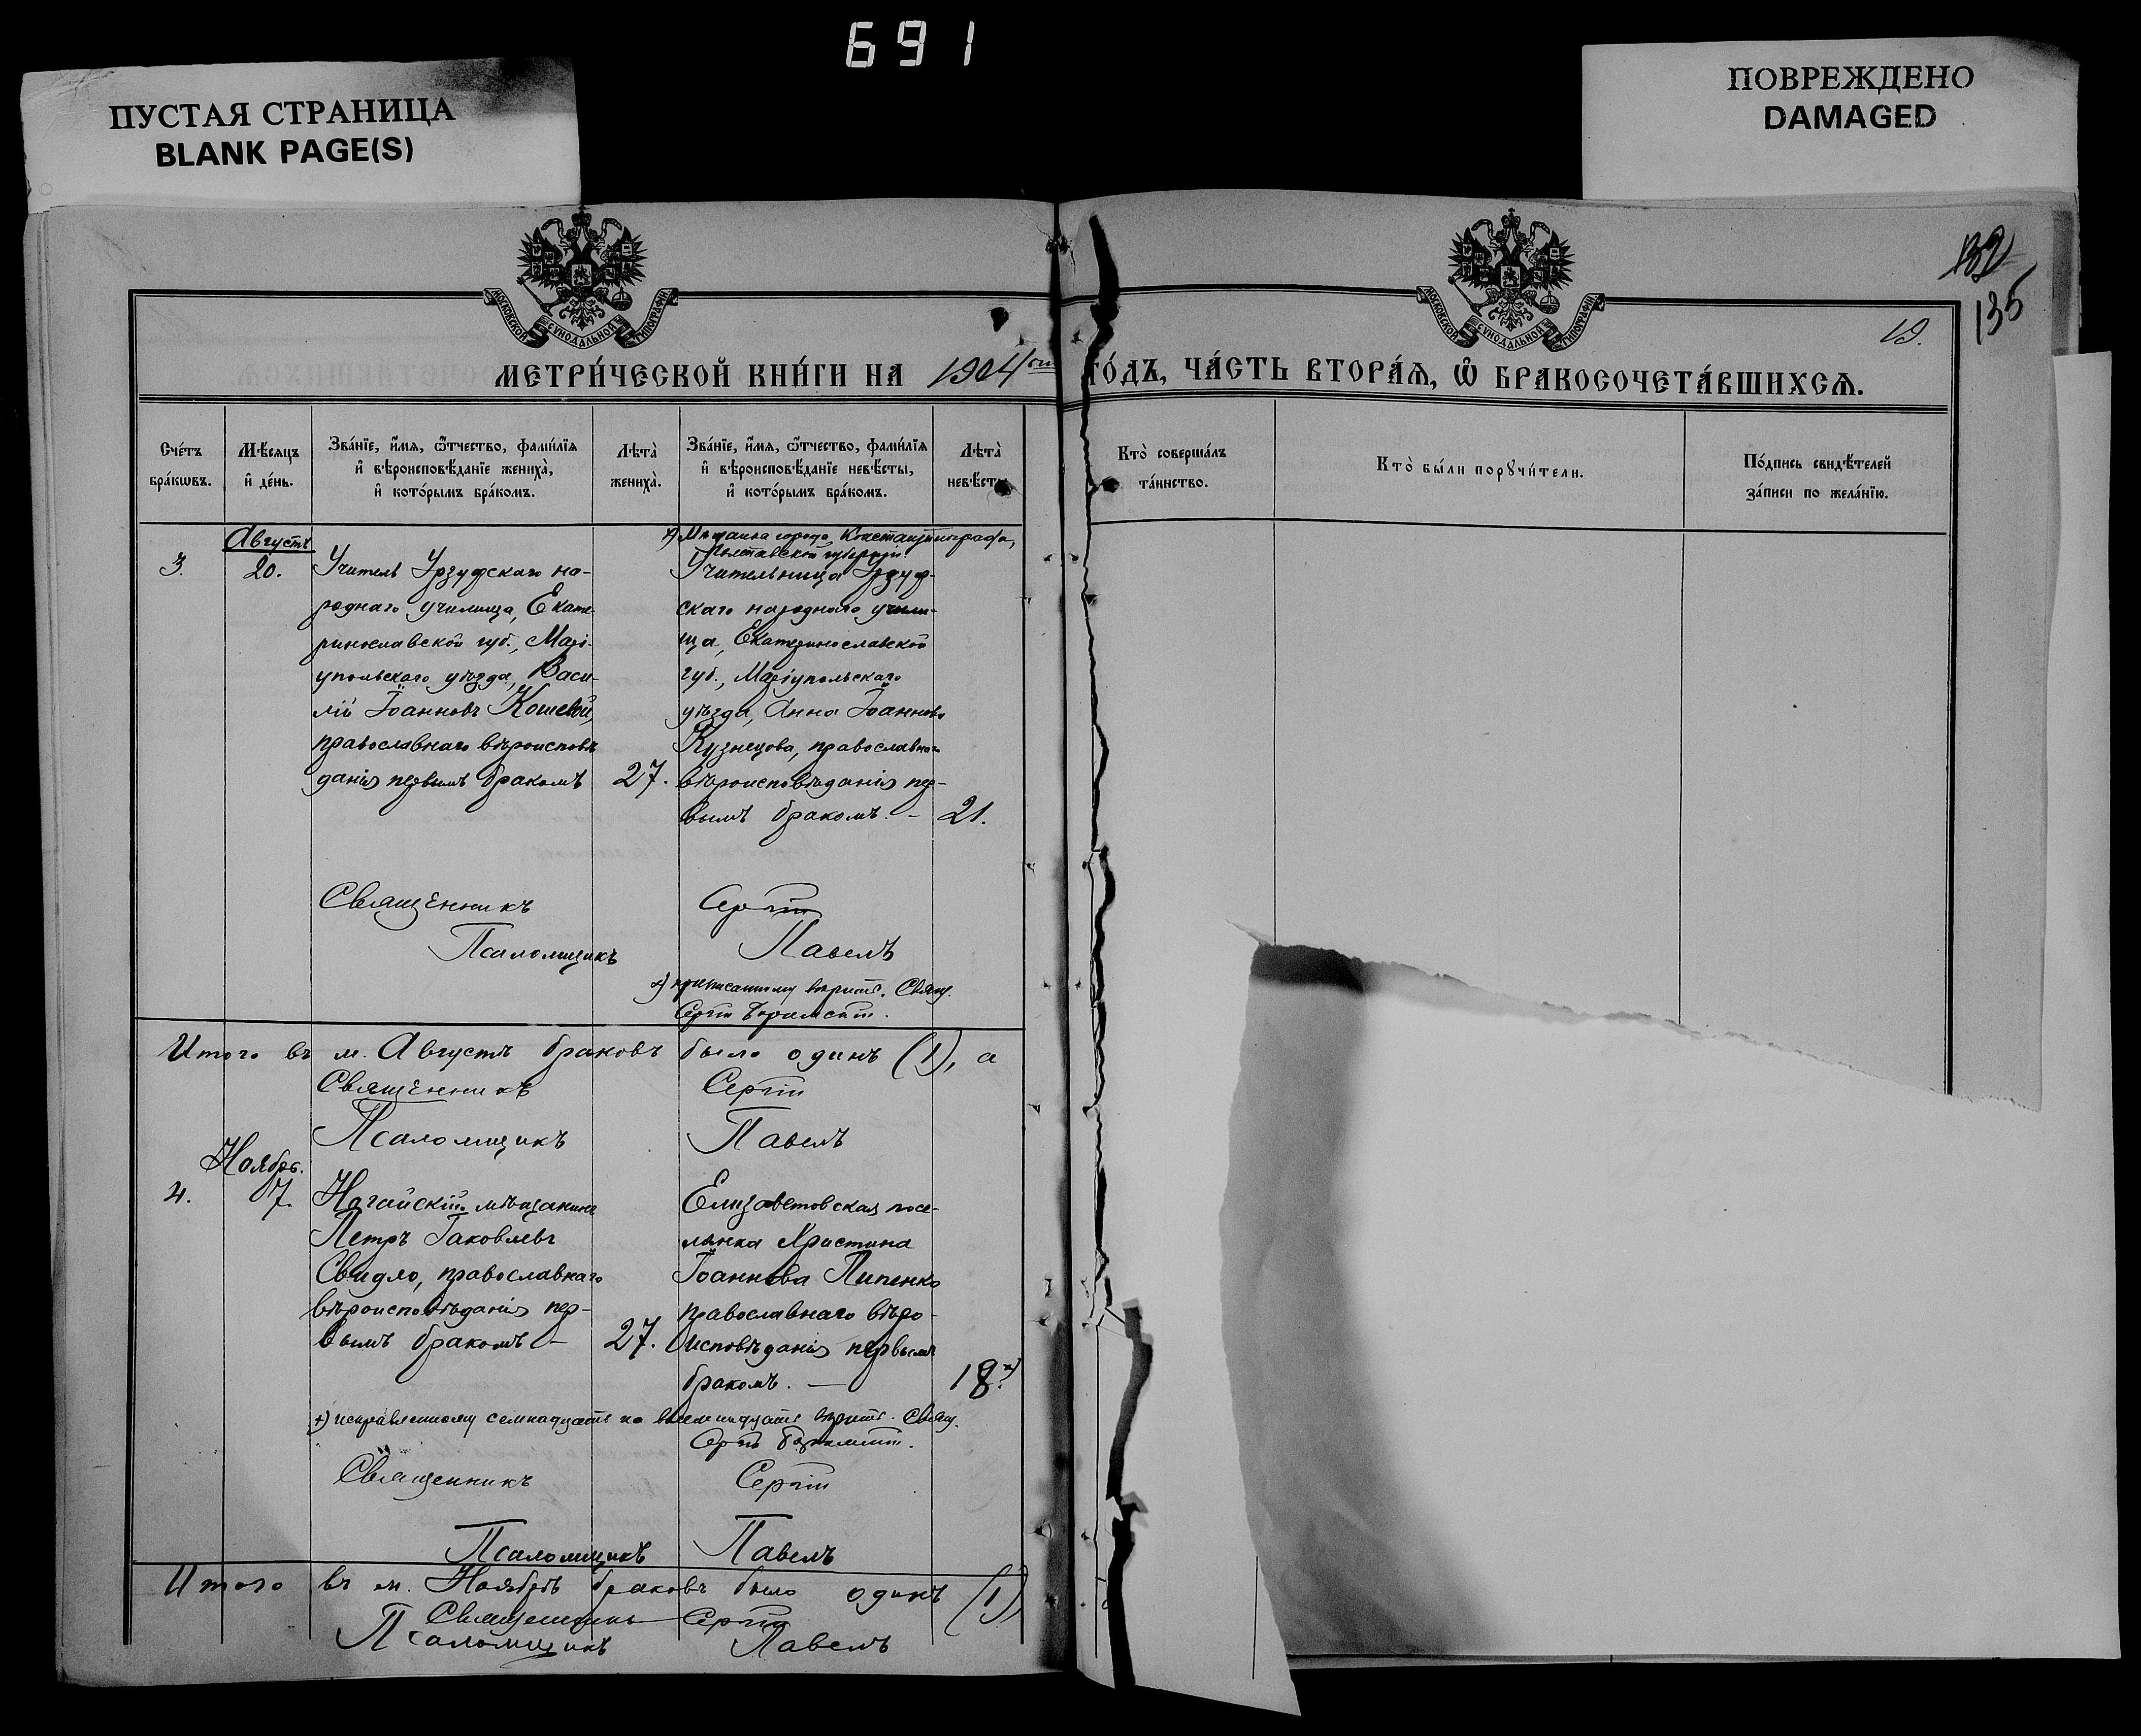 691
ПУСТАЯ СТРАНИЦА
BLANK PAGE(S)
ПОВРЕЖДЕНО
DAMAGED
МОСКОВСКОЙ СѴНОДАЛЬНОЙ ТИПОГРАФІИ
МОСКОВСКОЙ СѴНОДАЛЬНОЙ ТИПОГРАФІИ
132
135
19.
МЕТРИ́ЧЕСКОЙ КНИ́ГИ НА 1904 ГО́ДЪ, ЧА́СТЬ ВТОРА́Ѧ, Ѡ҆ БРАКОСОЧЕТА́ВШИХСѦ.
Сче́тъ
бра́кѡвъ.
Мѣ́сѧцъ
и҆ де́нь.
Зва́нїе, и҆́мѧ, ѻ҆́тчество, фами́лїѧ
и҆ вѣроисповѣ́данїе жениха̀,
и҆ кото́рымъ бра́комъ.
Лѣ́та̀
жениха̀.
Зва́нїе, и҆́мѧ, ѻ҆́тчество, фами́лїѧ
и҆ вѣроисповѣ́данїе невѣ́сты,
и҆ кото́рымъ бра́комъ.
Лѣ́та̀
невѣ́сты
Кто̀ соверша́лъ
та́инство.
Кто̀ бы́ли порꙋчи́тели.
По́дпись свидѣ́телей
за́писи по жела́нїю.
Августъ
3. 20.
Учитель Урзуфскаго на-
роднаго училища, Екате-
ринославской губ., Марі-
упольскаго уѣзда, Васи-
лій Іоанновъ Кошевой,
православнаго вѣроисповѣ
данія первымъ бракомъ 27.
х) Мѣщанка города Константинограда,
Полтавской губерніи
Учительница Урзуф-
скаго народнаго учили-
ща, Екатеринославской
губ., Маріупольскаго
уѣзда, Анна Іоаннова
Кузнецова, православнаго
вѣроисповѣданія пер-
вымъ бракомъ. – 21.
Священникъ Сергій
Псаломщикъ Павелъ
х) приписанному вѣрить. Свящ.
Сергій
Итого въ м. Августѣ браковъ было одинъ (1), а
Священникъ Сергій
Псаломщикъ Павелъ
Ноябрь.
4. 7.
Ногайскій мѣщанинъ
Петръ Іаковлевъ
Свидло, православнаго
вѣроисповѣданія пер-
вымъ бракомъ – 27.
Елизаветовская посе-
лянка Христина
Іоаннова Пипенко
православнаго вѣро-
исповѣданія первымъ
бракомъ. — 18. х)
х) исправленному семнадцать на восемнадцать вѣрить. Свящ.
Сергій
Священникъ Сергій
Псаломщикъ Павелъ
Итого въ м. Ноябрѣ браковъ было одинъ (1),
Священникъ Сергій
Псаломщикъ Павелъ